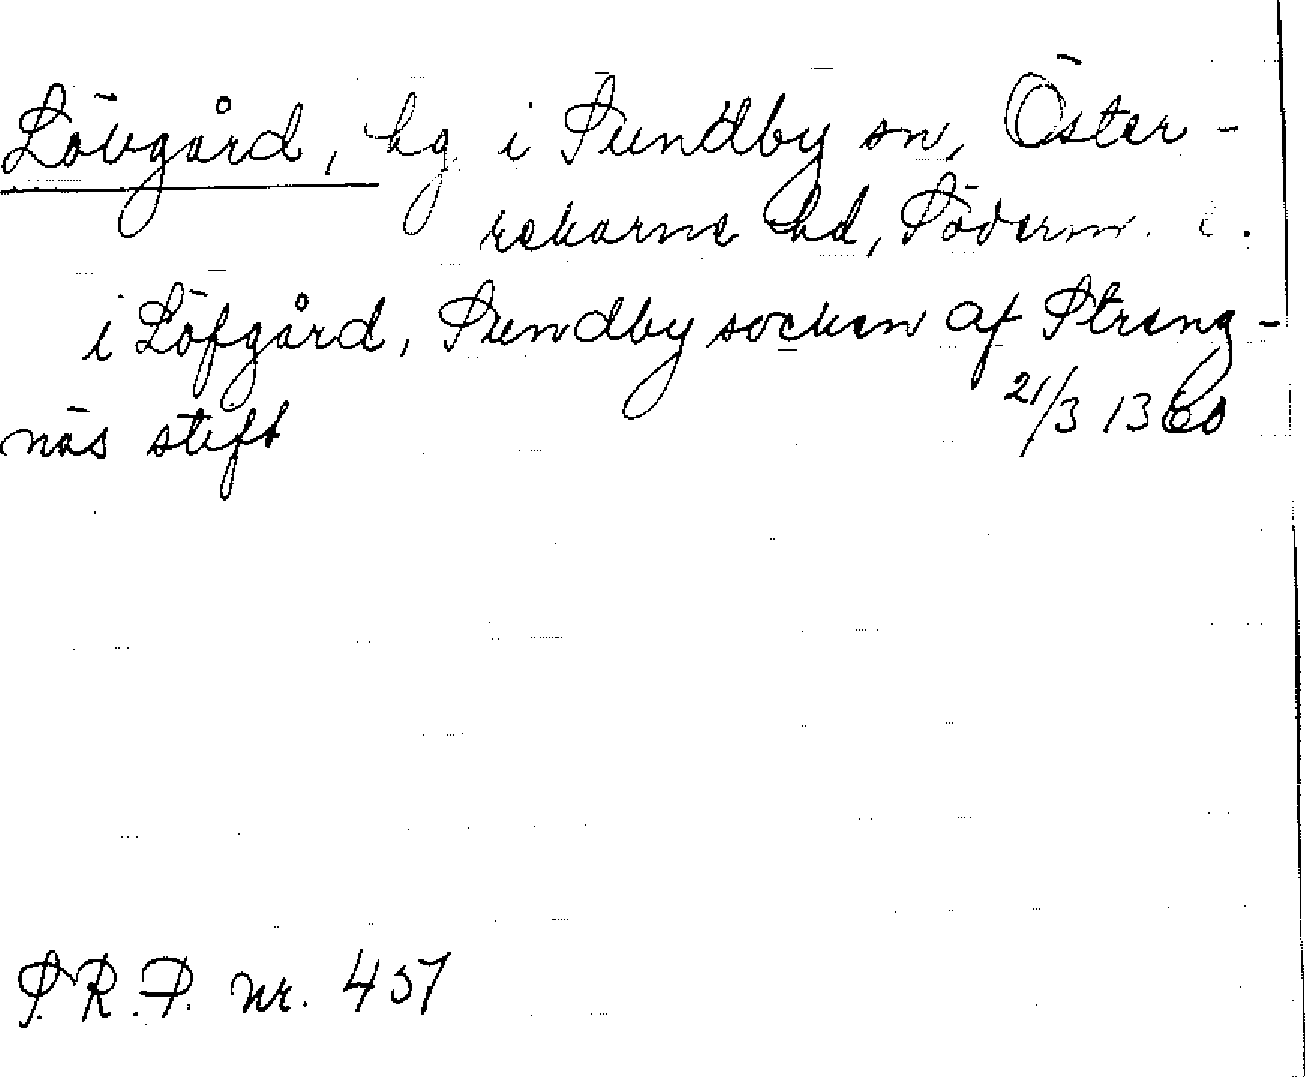 Lövgård, hg i Sundby sn, Öster-
rekarne hd, Söderm. l.
i Löfgård, Sundby socken af Streng-
näs stift 21/3 1360
S.R.P. nr. 457